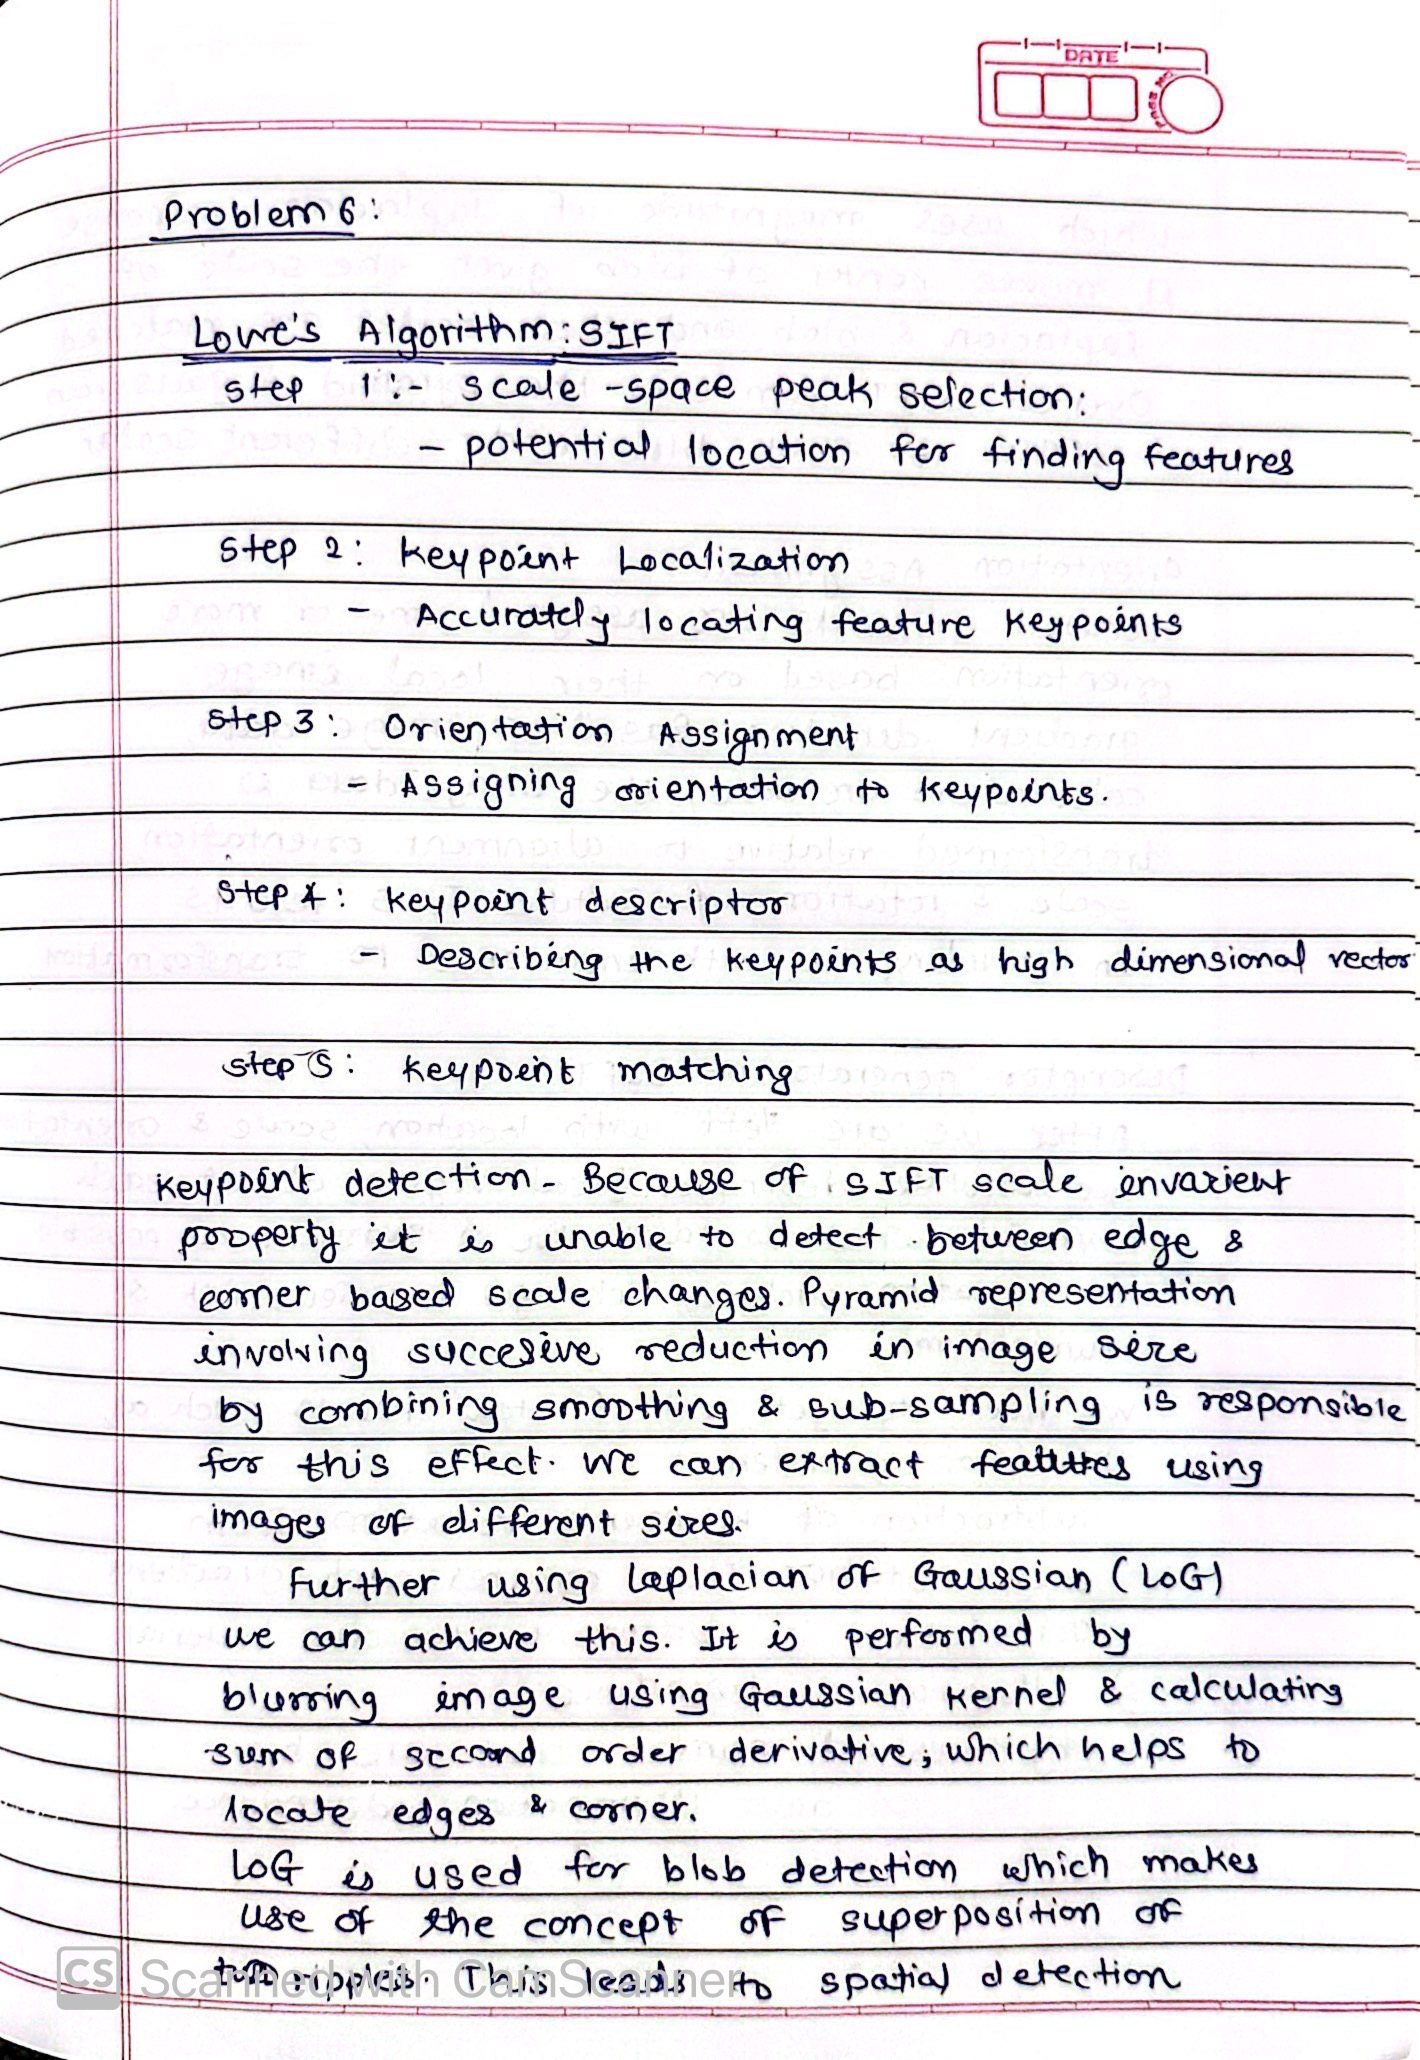 DATE
PAGE NO.
Problem 6:
Lowe's Algorithm: SIFT
step 1:- scale-space peak selection:
- potential location for finding features
step 2: keypoint Localization
- Accurately locating feature keypoints
step 3: Orientation Assignment
- Assigning orientation to keypoints.
step 4: keypoint descriptor
- Describing the keypoints as high dimensional vector
step 5: keypoint matching
keypoint detection - Because of SIFT scale invarient
property it is unable to detect between edge &
corner based scale changes. Pyramid representation
involving succesive reduction in image size
by combining smoothing & sub-sampling is responsible
for this effect. We can extract features using
images of different sizes.
Further using Laplacian of Gaussian (LoG)
we can achieve this. It is performed by
blurring image using Gaussian kernel & calculating
sum of second order derivative; which helps to
locate edges & corner.
LoG is used for blob detection which makes
use of the concept of superposition of
two ripples. This leads to spatial detection
CS Scanned with CamScanner